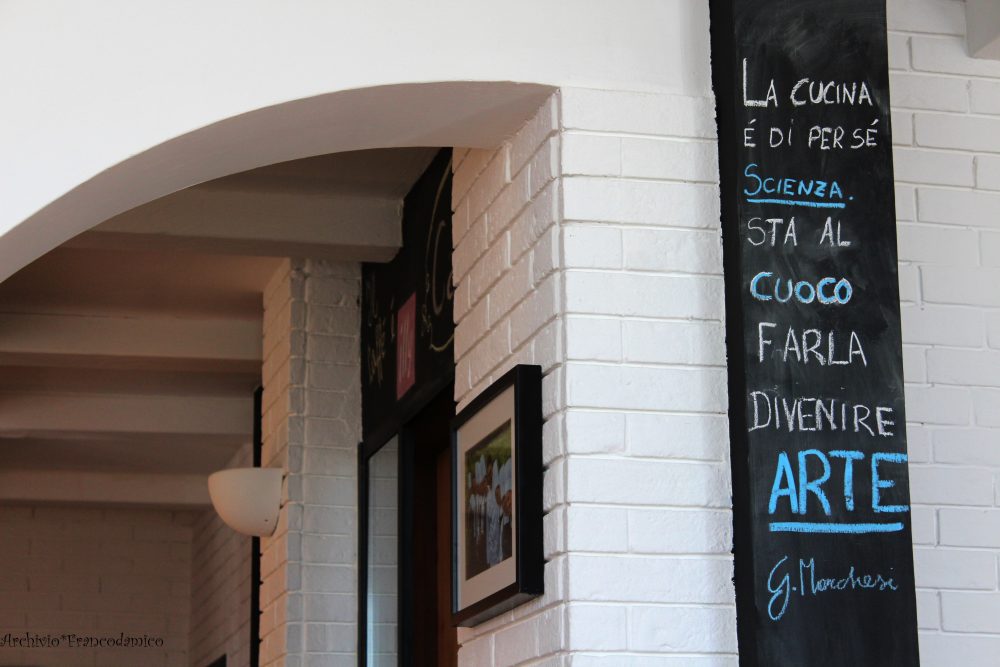 LA CUCINA
É DI PER SÉ
SCIENZA.
STA AL
CUOCO
FARLA
DIVENIRE
ARTE
G. Marchesi
Archivio*Francodamico